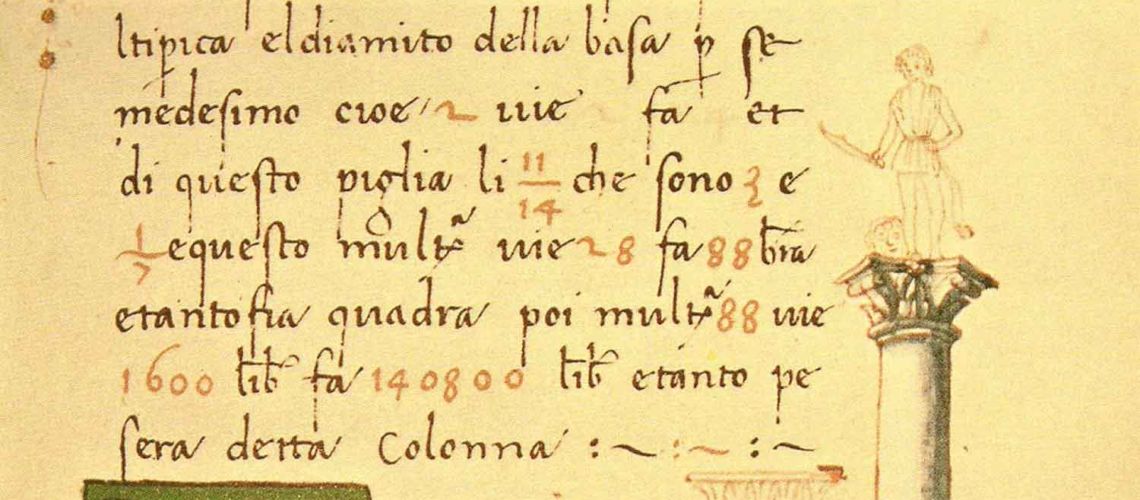 ltipica eldiamito della basa p se
medesimo cioe 2 uie fa et
di questo piglia li 11/14 che sono 3 e
1/7 equesto mult uie 28 fa 88 bra
etanto fia quadra poi mult 88 uie
1600 lib fa 140800 lib etanto pe
sera detta Colonna :~:~:~